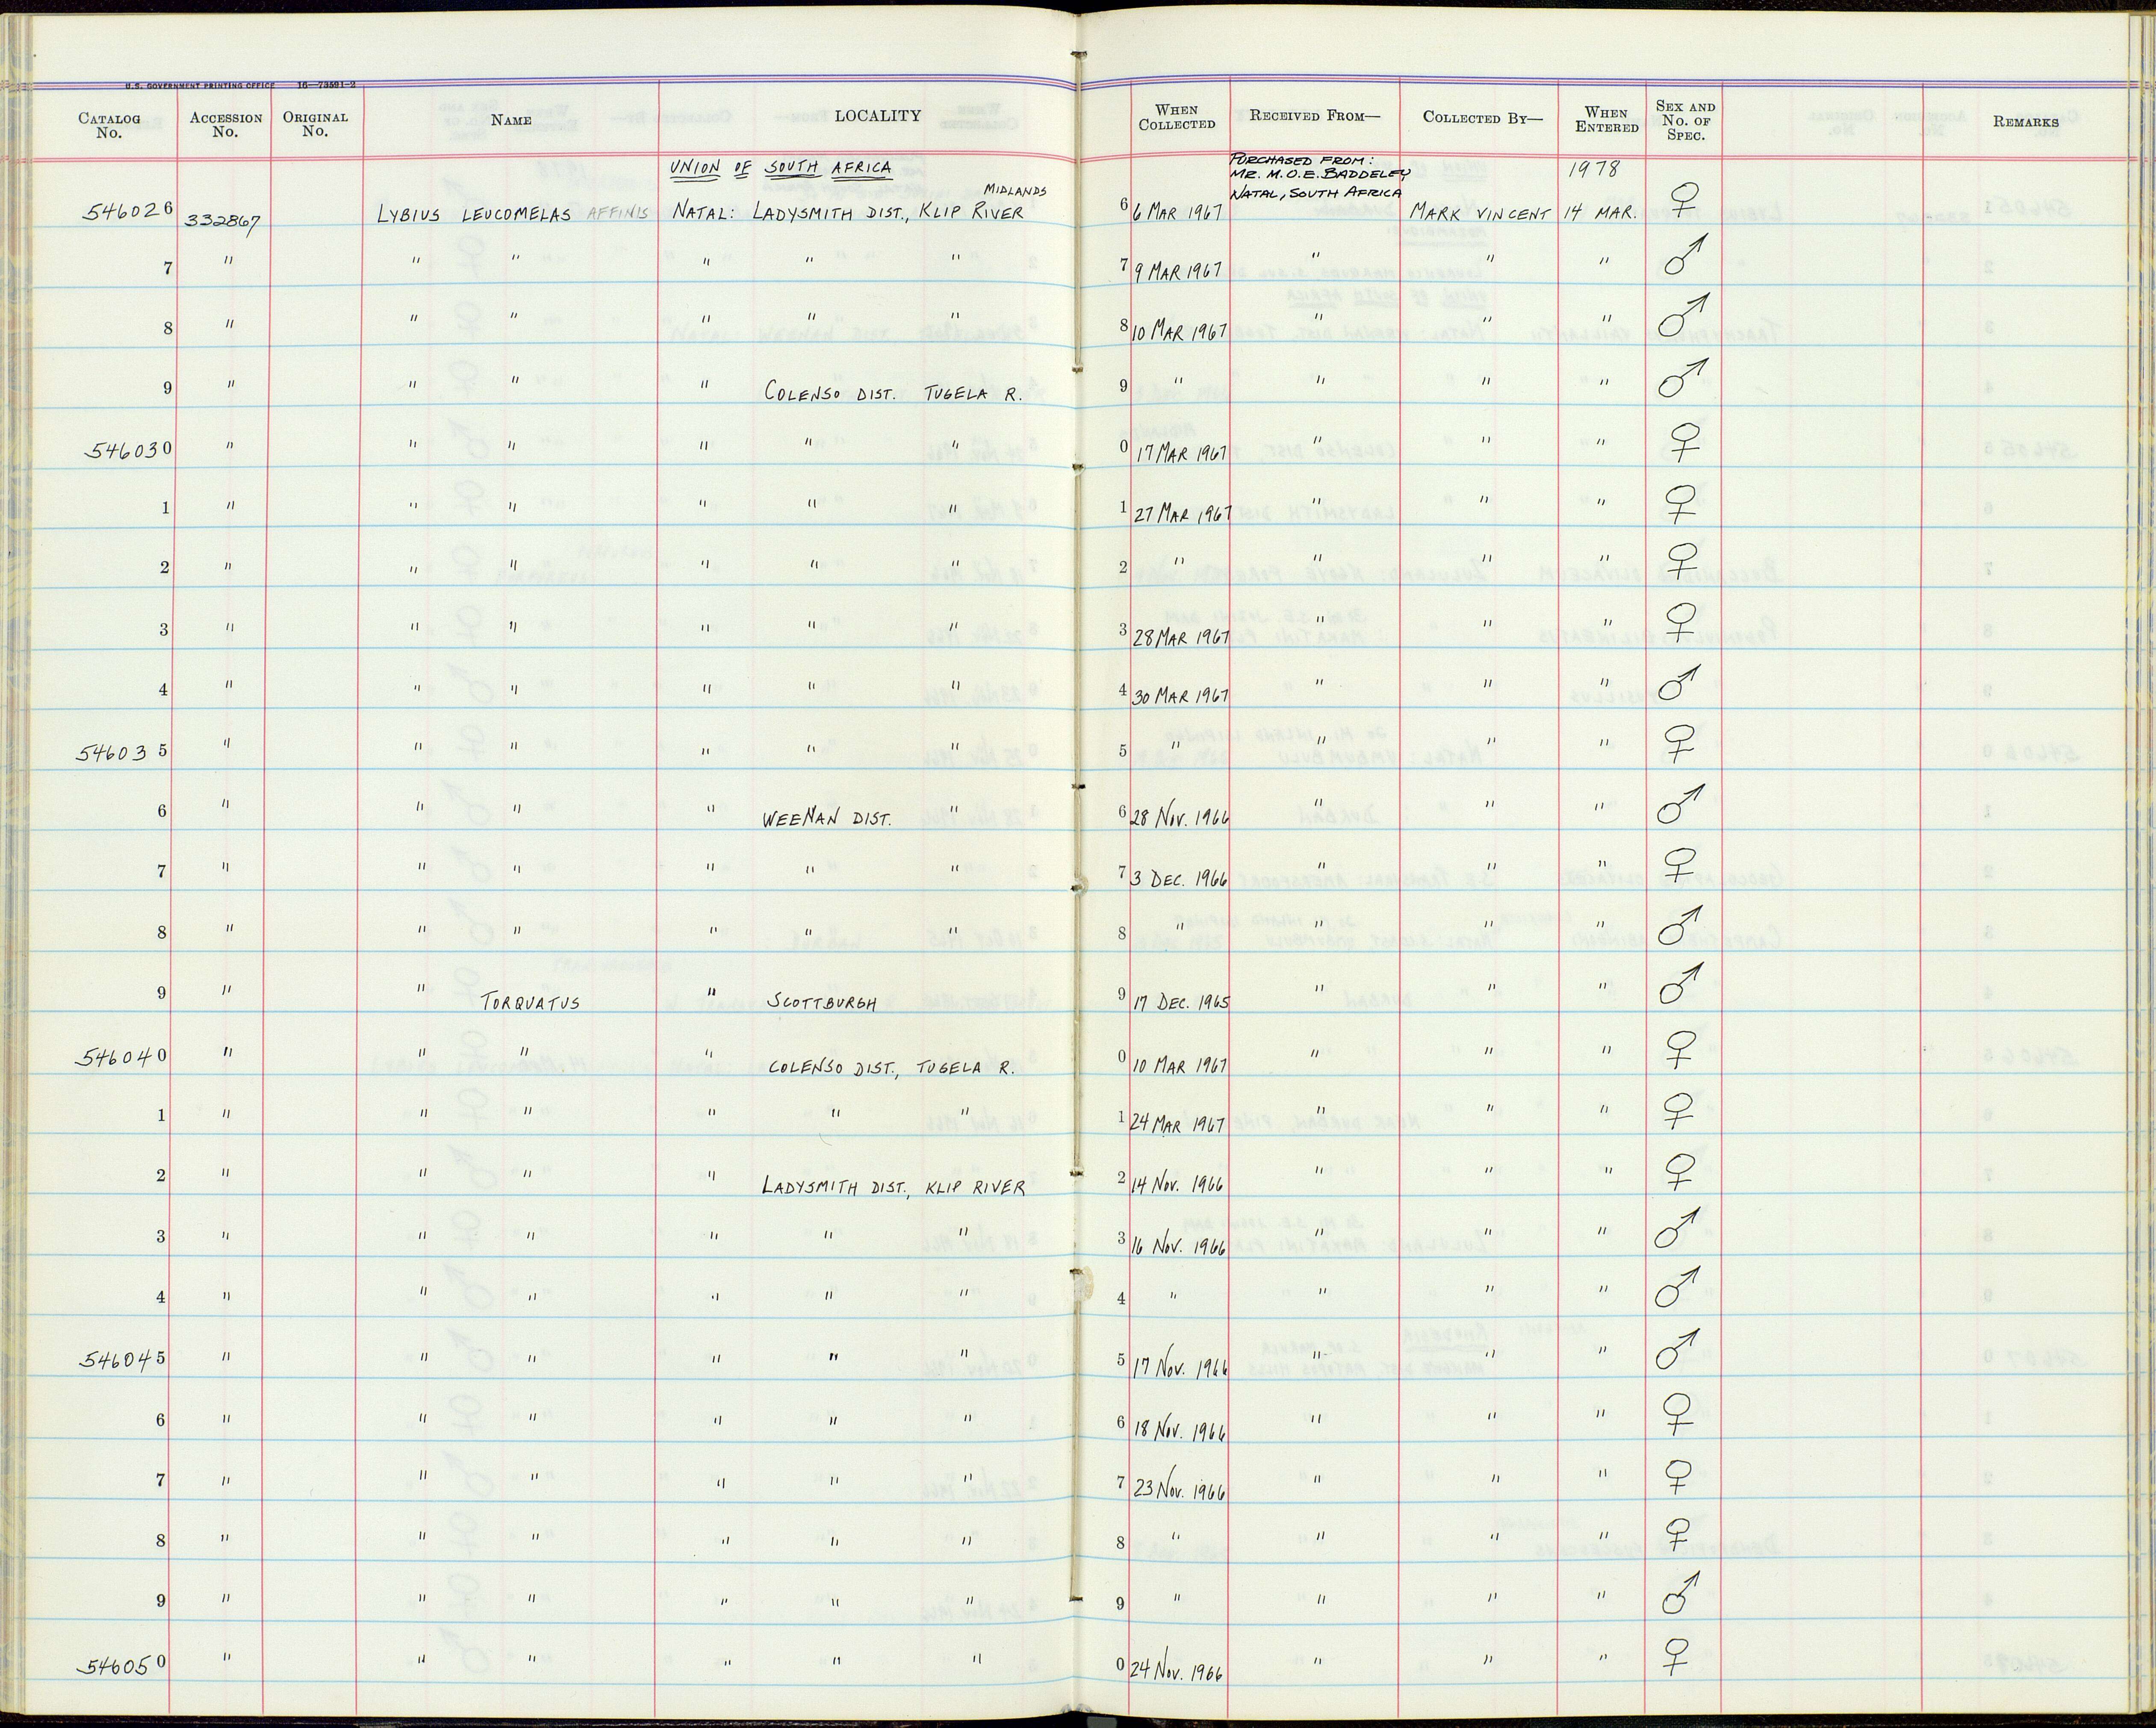 U.S. GOVERNMENT PRINTING OFFICE 16—73591-2
CATALOG No. ACCESSION No. ORIGINAL No. NAME LOCALITY WHEN COLLECTED RECEIVED FROM— COLLECTED BY— WHEN ENTERED SEX AND No. OF SPEC. REMARKS
UNION OF SOUTH AFRICA PURCHASED FROM: MR. M.O.E. BADDELEY NATAL, SOUTH AFRICA 1978
MIDLANDS
546026 332867 LYBIUS LEUCOMELAS AFFINIS NATAL: LADYSMITH DIST., KLIP RIVER 6 6 MAR 1967 MARK VINCENT 14 MAR. ♀
7 " " " " " " 7 9 MAR 1967 " " " ♂
8 " " " " " " 8 10 MAR 1967 " " " ♂
9 " " " " COLENSO DIST. TUGELA R. 9 " " " " ♂
546030 " " " " " " 0 17 MAR 1967 " " " ♀
1 " " " " " " 1 27 MAR 1967 " " " ♀
2 " " " " " " 2 " " " " ♀
3 " " " " " " 3 28 MAR 1967 " " " ♀
4 " " " " " " 4 30 MAR 1967 " " " ♂
546035 " " " " " " 5 " " " " ♀
6 " " " " WEENAN DIST. " 6 28 NOV. 1966 " " " ♂
7 " " " " " " 7 3 DEC. 1966 " " " ♀
8 " " " " " " 8 " " " " ♂
9 " " TORQUATUS " SCOTTBURGH 9 17 DEC. 1965 " " " ♂
546040 " " " " COLENSO DIST., TUGELA R. 0 10 MAR 1967 " " " ♀
1 " " " " " " 1 24 MAR 1967 " " " ♀
2 " " " " LADYSMITH DIST., KLIP RIVER 2 14 NOV. 1966 " " " ♀
3 " " " " " " 3 16 NOV. 1966 " " " ♂
4 " " " " " " 4 " " " " ♂
546045 " " " " " " 5 17 NOV. 1966 " " " ♂
6 " " " " " " 6 18 NOV. 1966 " " " ♀
7 " " " " " " 7 23 NOV. 1966 " " " ♀
8 " " " " " " 8 " " " " ♀
9 " " " " " " 9 " " " " ♂
546050 " " " " " " 0 24 NOV. 1966 " " " ♀